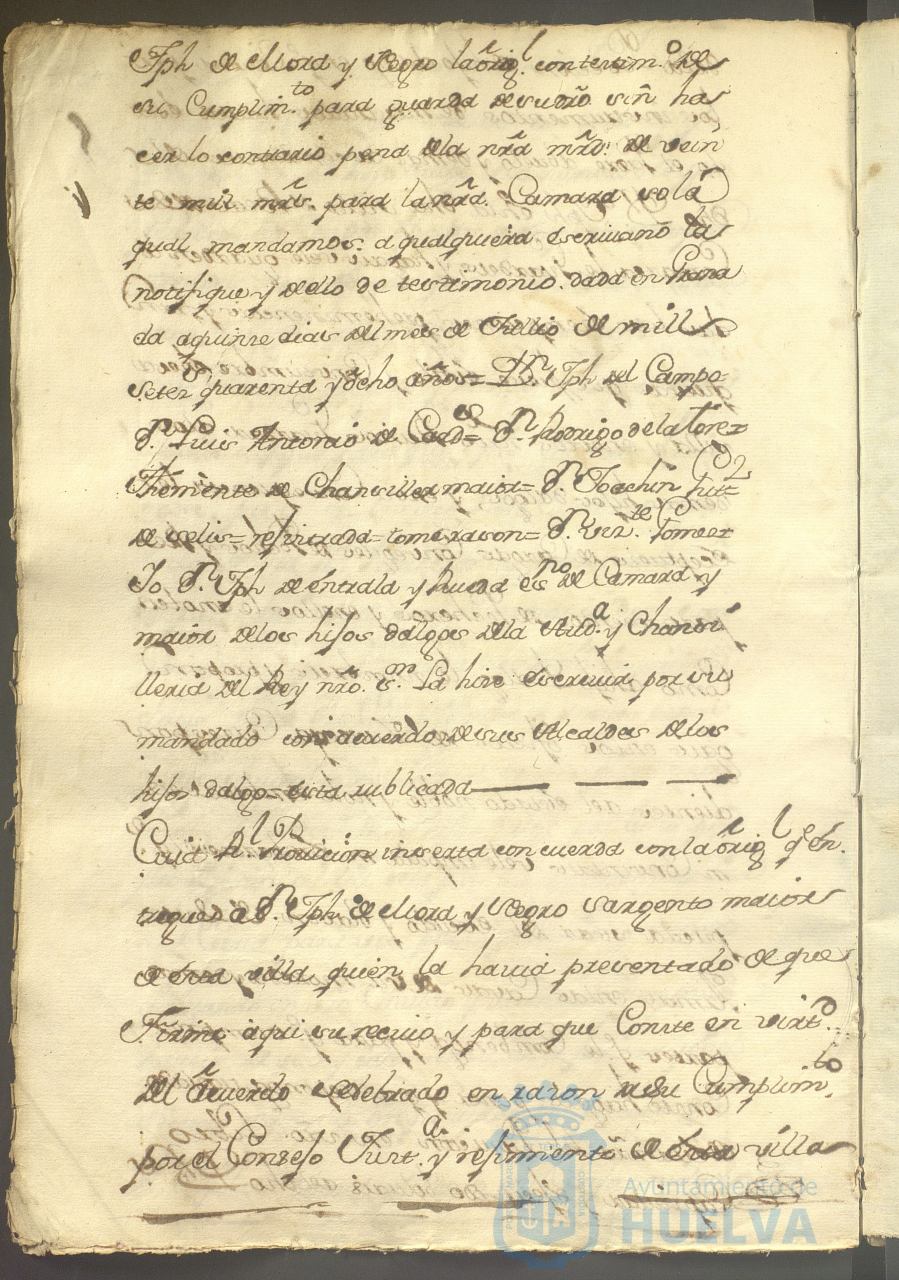 Jph de Mora y Negro la orig.l con testim.o de
su Cumplim.to para guarda de su dro. sin ha
cer lo contrario pena de la nrã mrd. de vein
te mill mrs. para la nrã. Camara so la
qual mandamos. a qualquiera escriuano la
notifique y de ello de testimonio. dada en Grana
da a quinze dias del mes de Jullio de mill
setez.s quarenta y ocho, años= Dn. Jph del Campo=
Dn. Luis Antonio de =Dn. Rodrigo de la Torre=
Theniente de Chansiller maior= Dn. Joachin
de Solis= rexistrada= tome rason= Dn. Viz.te Gomez=
Yo Dn. Jph de entrala y Rueda esno. de Camara y
maior de los hijos dalgos de la Aud.a y Chansi
lleria del Rey nro. sr. La hize escreuir por su
mandado con acuerdo de sus Alcaldes de los
hijos dalgo= esta rublicada
Cuia Rl. Prouicion inserta concuerda con la orig.l q.e en
tregue a Dn. Jph de Mora y Negro Sargento maior
de esta villa quien la hauia presentado de que
Firme aqui su reciuo y para que Conste en virt.d
del acuerdo Celebrado en razon de su Cumplim.to
por el Consejo Just.a y rejimiento de esta villa
Ayuntamiento de
HUELVA